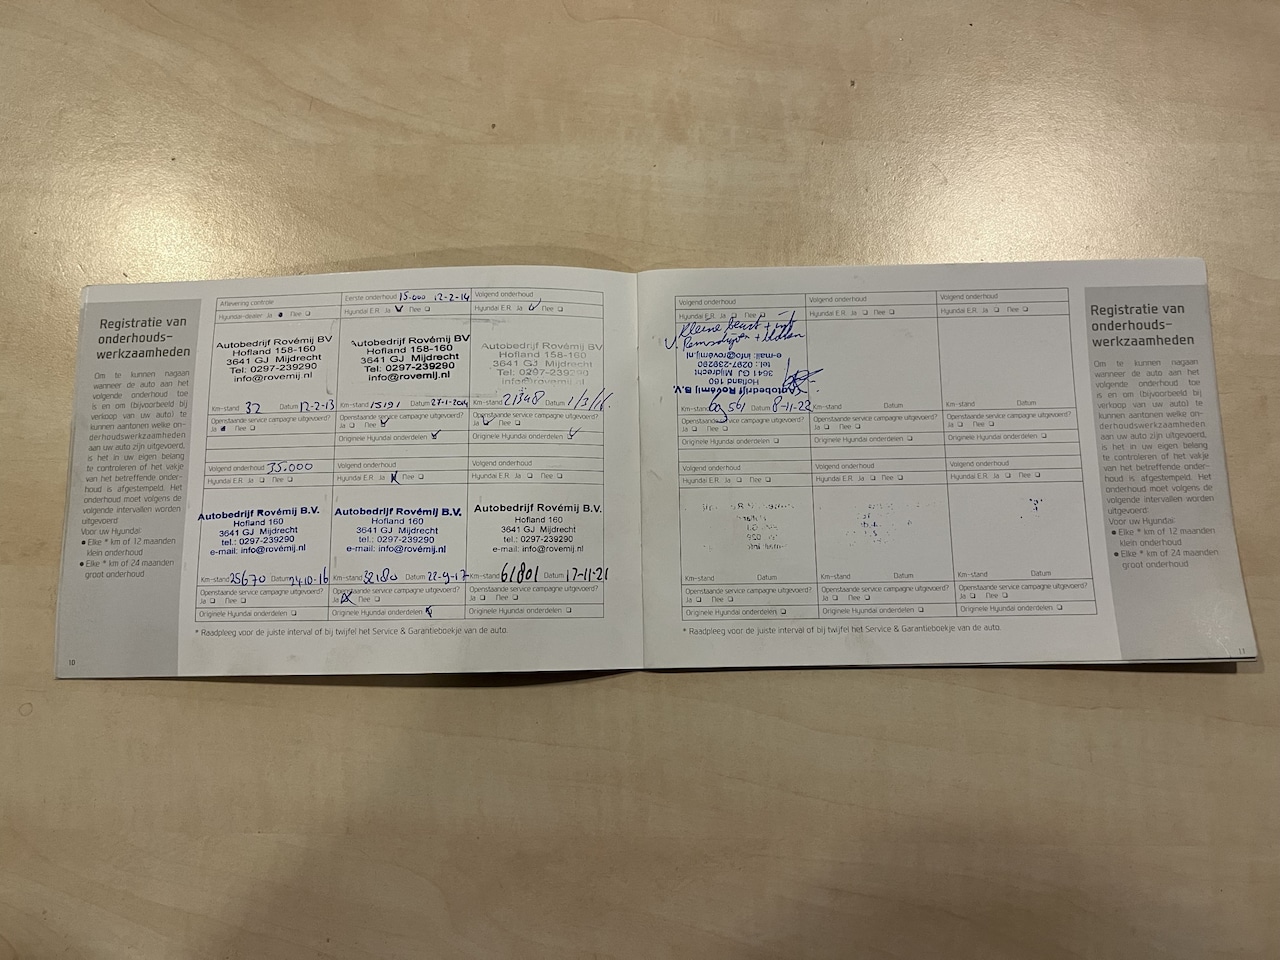 Registratie van
onderhouds-
werkzaamheden
Om te kunnen nagaan
wanneer de auto aan het
volgende onderhoud toe
is en om (bijvoorbeeld bij
verkoop van uw auto) te
kunnen aantonen welke on-
derhoudswerkzaamheden
aan uw auto zijn uitgevoerd,
is het in uw eigen belang
te controleren of het vakje
van het betreffende onder-
houd is afgestempeld. Het
onderhoud moet volgens de
volgende intervallen worden
uitgevoerd
Voor uw Hyundai:
● Elke * km of 12 maanden
klein onderhoud
● Elke * km of 24 maanden
groot onderhoud
10
Aflevering controle
Hyundai-dealer Ja Nee
Autobedrijf Rovémij BV
Hofland 158-160
3641 GJ Mijdrecht
Tel: 0297-239290
info@rovemij.nl
Km-stand 32 Datum 12-2-13
Openstaande service campagne uitgevoerd?
Ja Nee
Eerste onderhoud 15.000 12-2-14
Hyundai E.R. Ja Nee
Autobedrijf Rovémij BV
Hofland 158-160
3641 GJ Mijdrecht
Tel: 0297-239290
info@rovemij.nl
Km-stand 15191 Datum 27-1-2014
Openstaande service campagne uitgevoerd?
Ja Nee
Originele Hyundai onderdelen
Volgend onderhoud
Hyundai E.R. Ja Nee
Autobedrijf Rovémij BV
Hofland 158-160
3641 GJ Mijdrecht
Tel: 0297-239290
info@rovemij.nl
Km-stand 21348 Datum 1/3/16.
Openstaande service campagne uitgevoerd?
Ja Nee
Originele Hyundai onderdelen
Volgend onderhoud 35.000
Hyundai E.R. Ja Nee
Autobedrijf Rovémij B.V.
Hofland 160
3641 GJ Mijdrecht
tel.: 0297-239290
e-mail: info@rovémij.nl
Km-stand 25670 Datum 24-10-16
Openstaande service campagne uitgevoerd?
Ja Nee
Originele Hyundai onderdelen
Volgend onderhoud
Hyundai E.R. Ja Nee
Autobedrijf Rovémij B.V.
Hofland 160
3641 GJ Mijdrecht
tel.: 0297-239290
e-mail: info@rovémij.nl
Km-stand 32180 Datum 22-9-17
Openstaande service campagne uitgevoerd?
Ja Nee
Originele Hyundai onderdelen
Volgend onderhoud
Hyundai E.R. Ja Nee
Autobedrijf Rovémij B.V.
Hofland 160
3641 GJ Mijdrecht
tel.: 0297-239290
e-mail: info@rovémij.nl
Km-stand 61801 Datum 17-11-21
Openstaande service campagne uitgevoerd?
Ja Nee
Originele Hyundai onderdelen
* Raadpleeg voor de juiste interval of bij twijfel het Service & Garantieboekje van de auto.
Volgend onderhoud
Hyundai E.R. Ja Nee
Kleine beurt +
Remschijven + blokken
Autobedrijf Rovémij B.V.
Hofland 160
3641 GJ Mijdrecht
tel.: 0297-239290
e-mail: info@rovémij.nl
Km-stand 69561 Datum 8-11-22
Openstaande service campagne uitgevoerd?
Ja Nee
Originele Hyundai onderdelen
Volgend onderhoud
Hyundai E.R. Ja Nee
Km-stand Datum
Openstaande service campagne uitgevoerd?
Ja Nee
Originele Hyundai onderdelen
Volgend onderhoud
Hyundai E.R. Ja Nee
Km-stand Datum
Openstaande service campagne uitgevoerd?
Ja Nee
Originele Hyundai onderdelen
Volgend onderhoud
Hyundai E.R. Ja Nee
Km-stand Datum
Openstaande service campagne uitgevoerd?
Ja Nee
Originele Hyundai onderdelen
Volgend onderhoud
Hyundai E.R. Ja Nee
Km-stand Datum
Openstaande service campagne uitgevoerd?
Ja Nee
Originele Hyundai onderdelen
Volgend onderhoud
Hyundai E.R. Ja Nee
Km-stand Datum
Openstaande service campagne uitgevoerd?
Ja Nee
Originele Hyundai onderdelen
* Raadpleeg voor de juiste interval of bij twijfel het Service & Garantieboekje van de auto.
Registratie van
onderhouds-
werkzaamheden
Om te kunnen nagaan
wanneer de auto aan het
volgende onderhoud toe
is en om (bijvoorbeeld bij
verkoop van uw auto) te
kunnen aantonen welke on-
derhoudswerkzaamheden
aan uw auto zijn uitgevoerd,
is het in uw eigen belang
te controleren of het vakje
van het betreffende onder-
houd is afgestempeld. Het
onderhoud moet volgens de
volgende intervallen worden
uitgevoerd:
Voor uw Hyundai
● Elke * km of 12 maanden
klein onderhoud
● Elke * km of 24 maanden
groot onderhoud
11